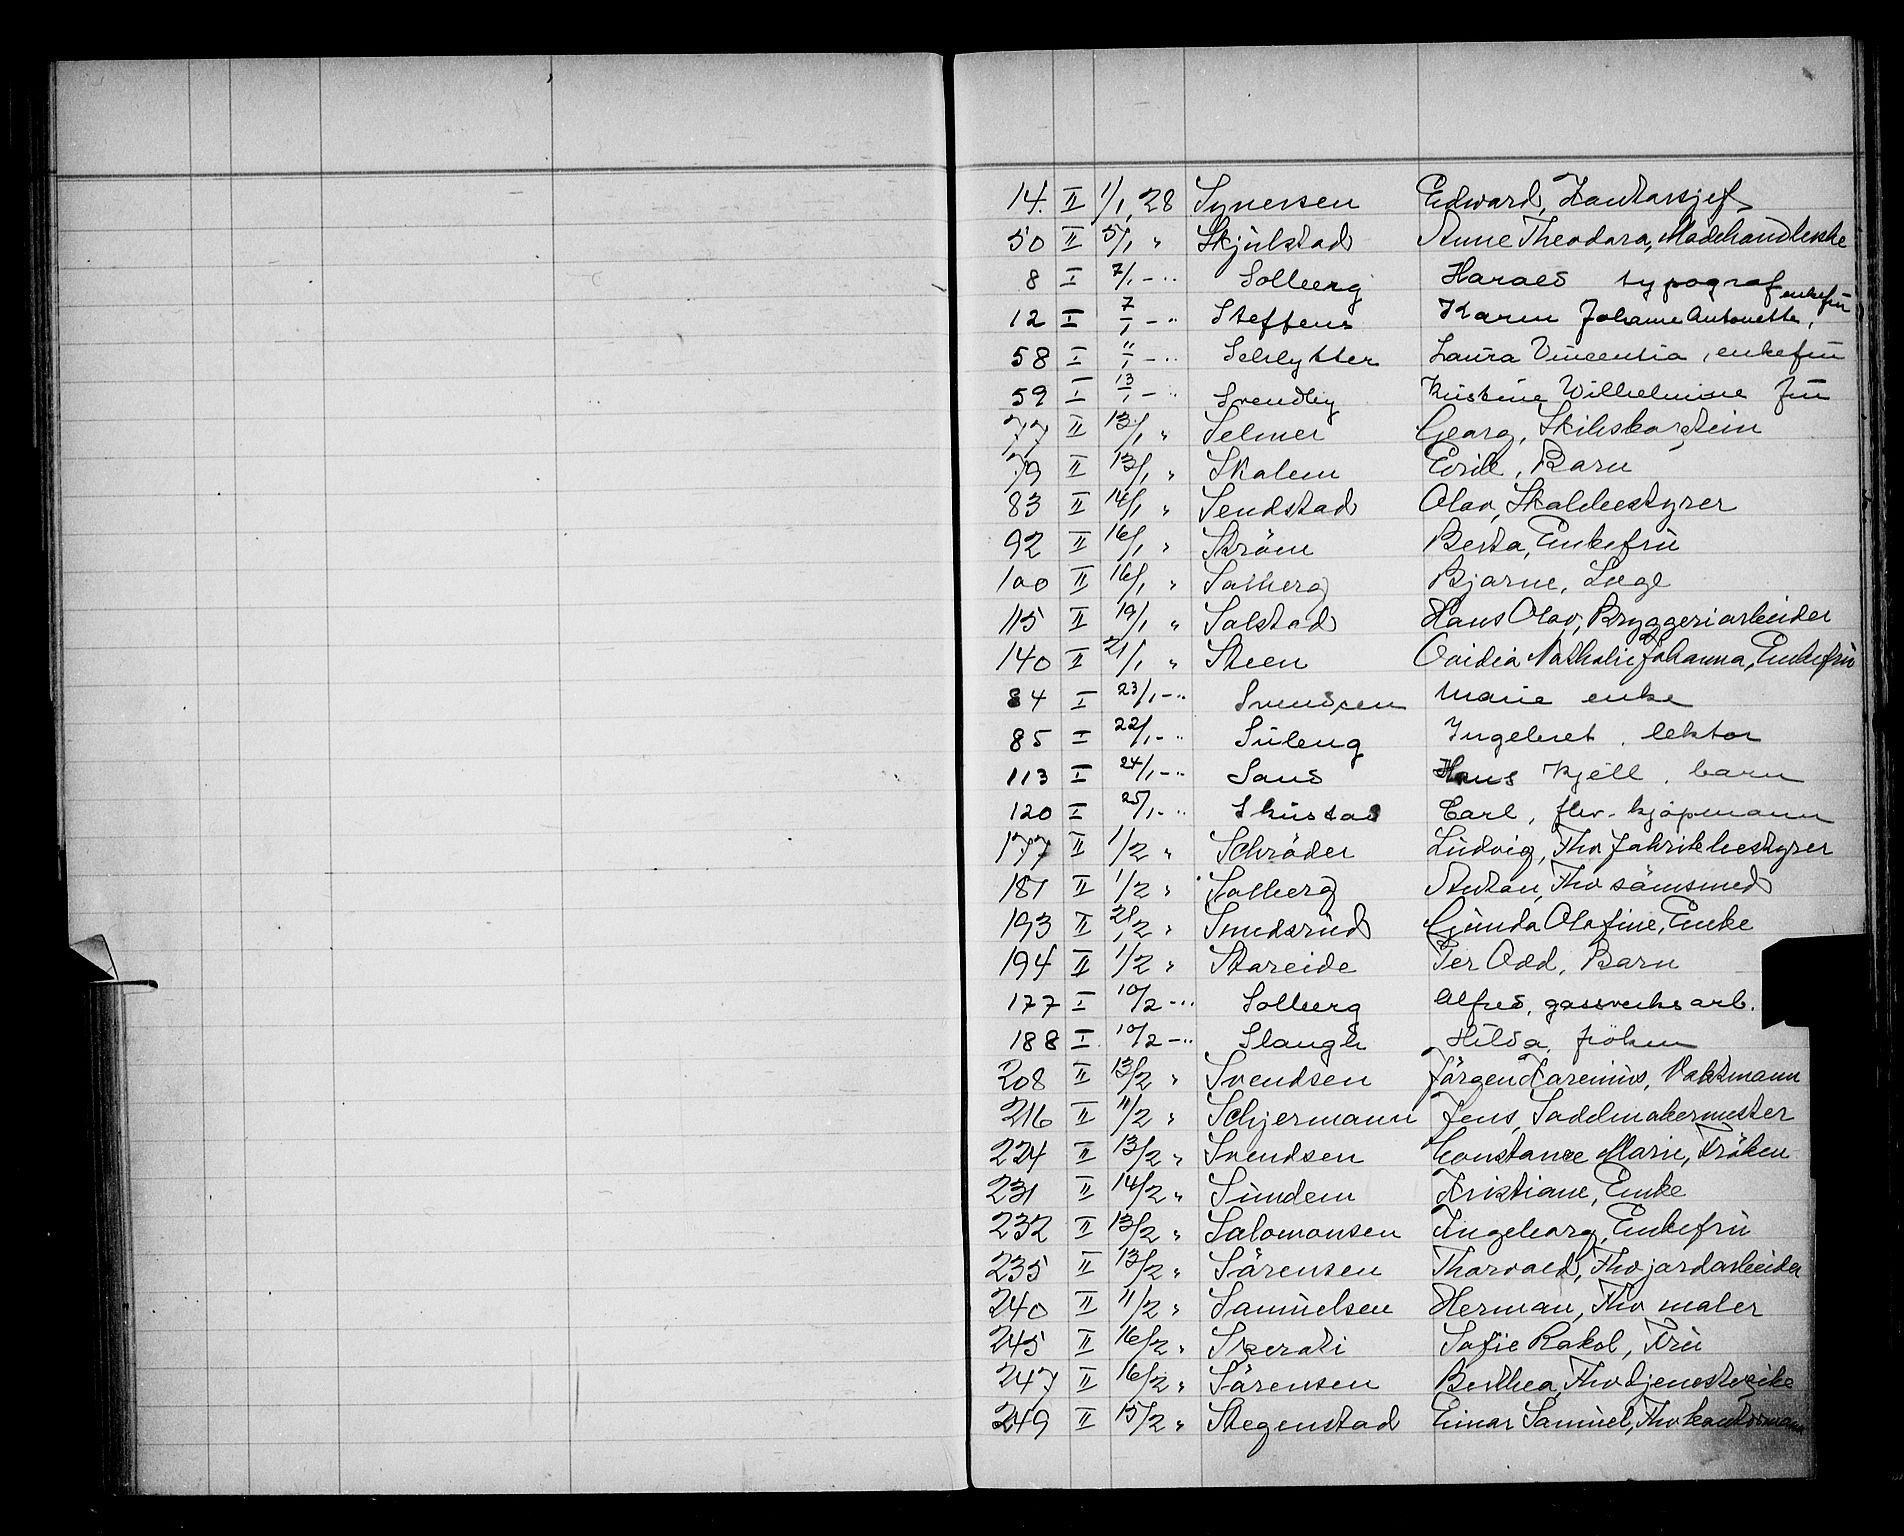 14. II 1/1 28 Synersen Edward, Kontorsjef
50 II 5/1 " Skjulstad Anne Theodora, Modehandlerske
8 I 7/1 - " Solberg Harald typograf
12 I 7/1 - " Steffens Karen Johanne Antonette, enkefru
58 I 11/1 - " Schlytter Laura Vincentia, enkefru
59 I 13/1 - " Svendby Kristine Wilhelmine fru
77 II 13/1 " Selmer Georg, Skibskaptein
79 II 13/1 " Skalem Eirik, Barn
83 II 14/1 " Sendstad Olav, Skolebestyrer
92 II 16/1 " Strøm Berta, Enkefru
100 II 16/1 " Solberg Bjarne, Læge
115 II 19/1 " Solstad Hans Olav, Bryggeriarbeider
140 II 21/1 " Steen Ovidia Nathalie Johanna, Enkefru
84 I 23/1 - " Svendsen Marie enke
85 I 22/1 - " Suleng Ingebret, lektor
113 I 24/1 - " Sand Hans Kjell, barn
120 I 25/1 - " Skustad Carl, fhv. kjøpmann
177 II 1/2 " Schrøder Ludvig, Fhv fabrikbestyrer
181 II 1/2 " Solberg Anton, Fhv sømsmed
193 II 2/2 " Smedsrud Gunda Olafine, Enke
194 II 1/2 " Stareide Per Odd, Barn
177 I 10/2 - " Solberg Alfred, gassverksarb.
188 I 10/2 - " Slaugh Hilda, frøken
208 II 13/2 " Svendsen Jørgen Karenius, Vaktmann
216 II 11/2 " Schjermann Jens, Sadelmakermester
224 II 13/2 " Svendsen Constance Marie, Frøken
231 II 14/2 " Sundem Kristiane, Enke
232 II 13/2 " Salomonsen Ingeborg, Enkefru
235 II 13/2 " Sørensen Thorvald, Fhv jordarbeider
240 II 11/2 " Samuelsen Herman, Fhv maler
245 II 16/2 " Sofie Rakel, Fru
247 II 16/2 " Sørensen Berthea, Fhv tjenestepike
249 II 15/2 " Stegenstad Einar Samuel, Fhv kontormann